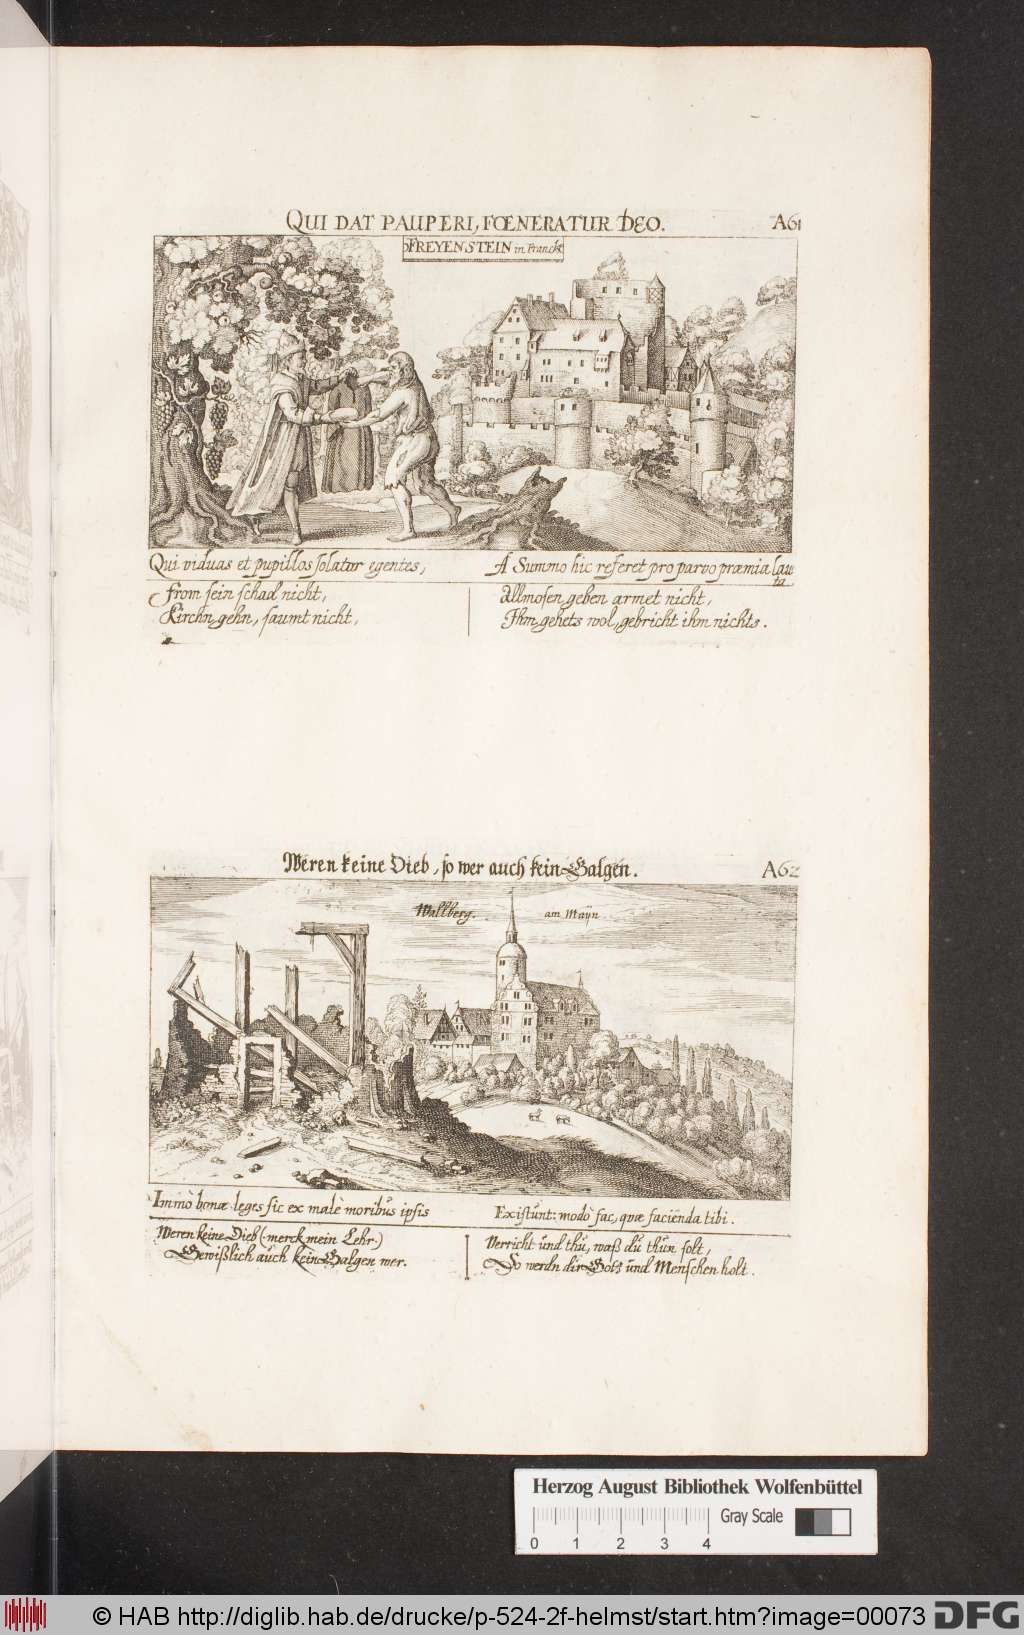 QUI DAT PAUPERI, FŒNERATUR DEO.
A61
FREYENSTEIN in Franckē
Qui viduas et pupillos solatur egentes,
A Summo hic referet pro parvo præmia lau
ta
From sein schad nicht,
Kirchn gehn, saumt nicht,
Allmosen geben armet nicht,
Ihm gehets wol, gebricht ihm nichts.
Weren keine Dieb, so wer auch kein Galgen.
A62
Wallberg. am Maÿn
Immò bonæ leges sic ex malè moribus ipsis
Existunt: modò fac, quæ facienda tibi.
Weren keine Dieb (merck mein Lehr)
Gewißlich auch kein Galgen wer.
Verricht und thu, waß du thun solt,
So werdn dir Gott und Menschen holt.
Herzog August Bibliothek Wolfenbüttel
Gray Scale
0 1 2 3 4
© HAB http://diglib.hab.de/drucke/p-524-2f-helmst/start.htm?image=00073
DFG